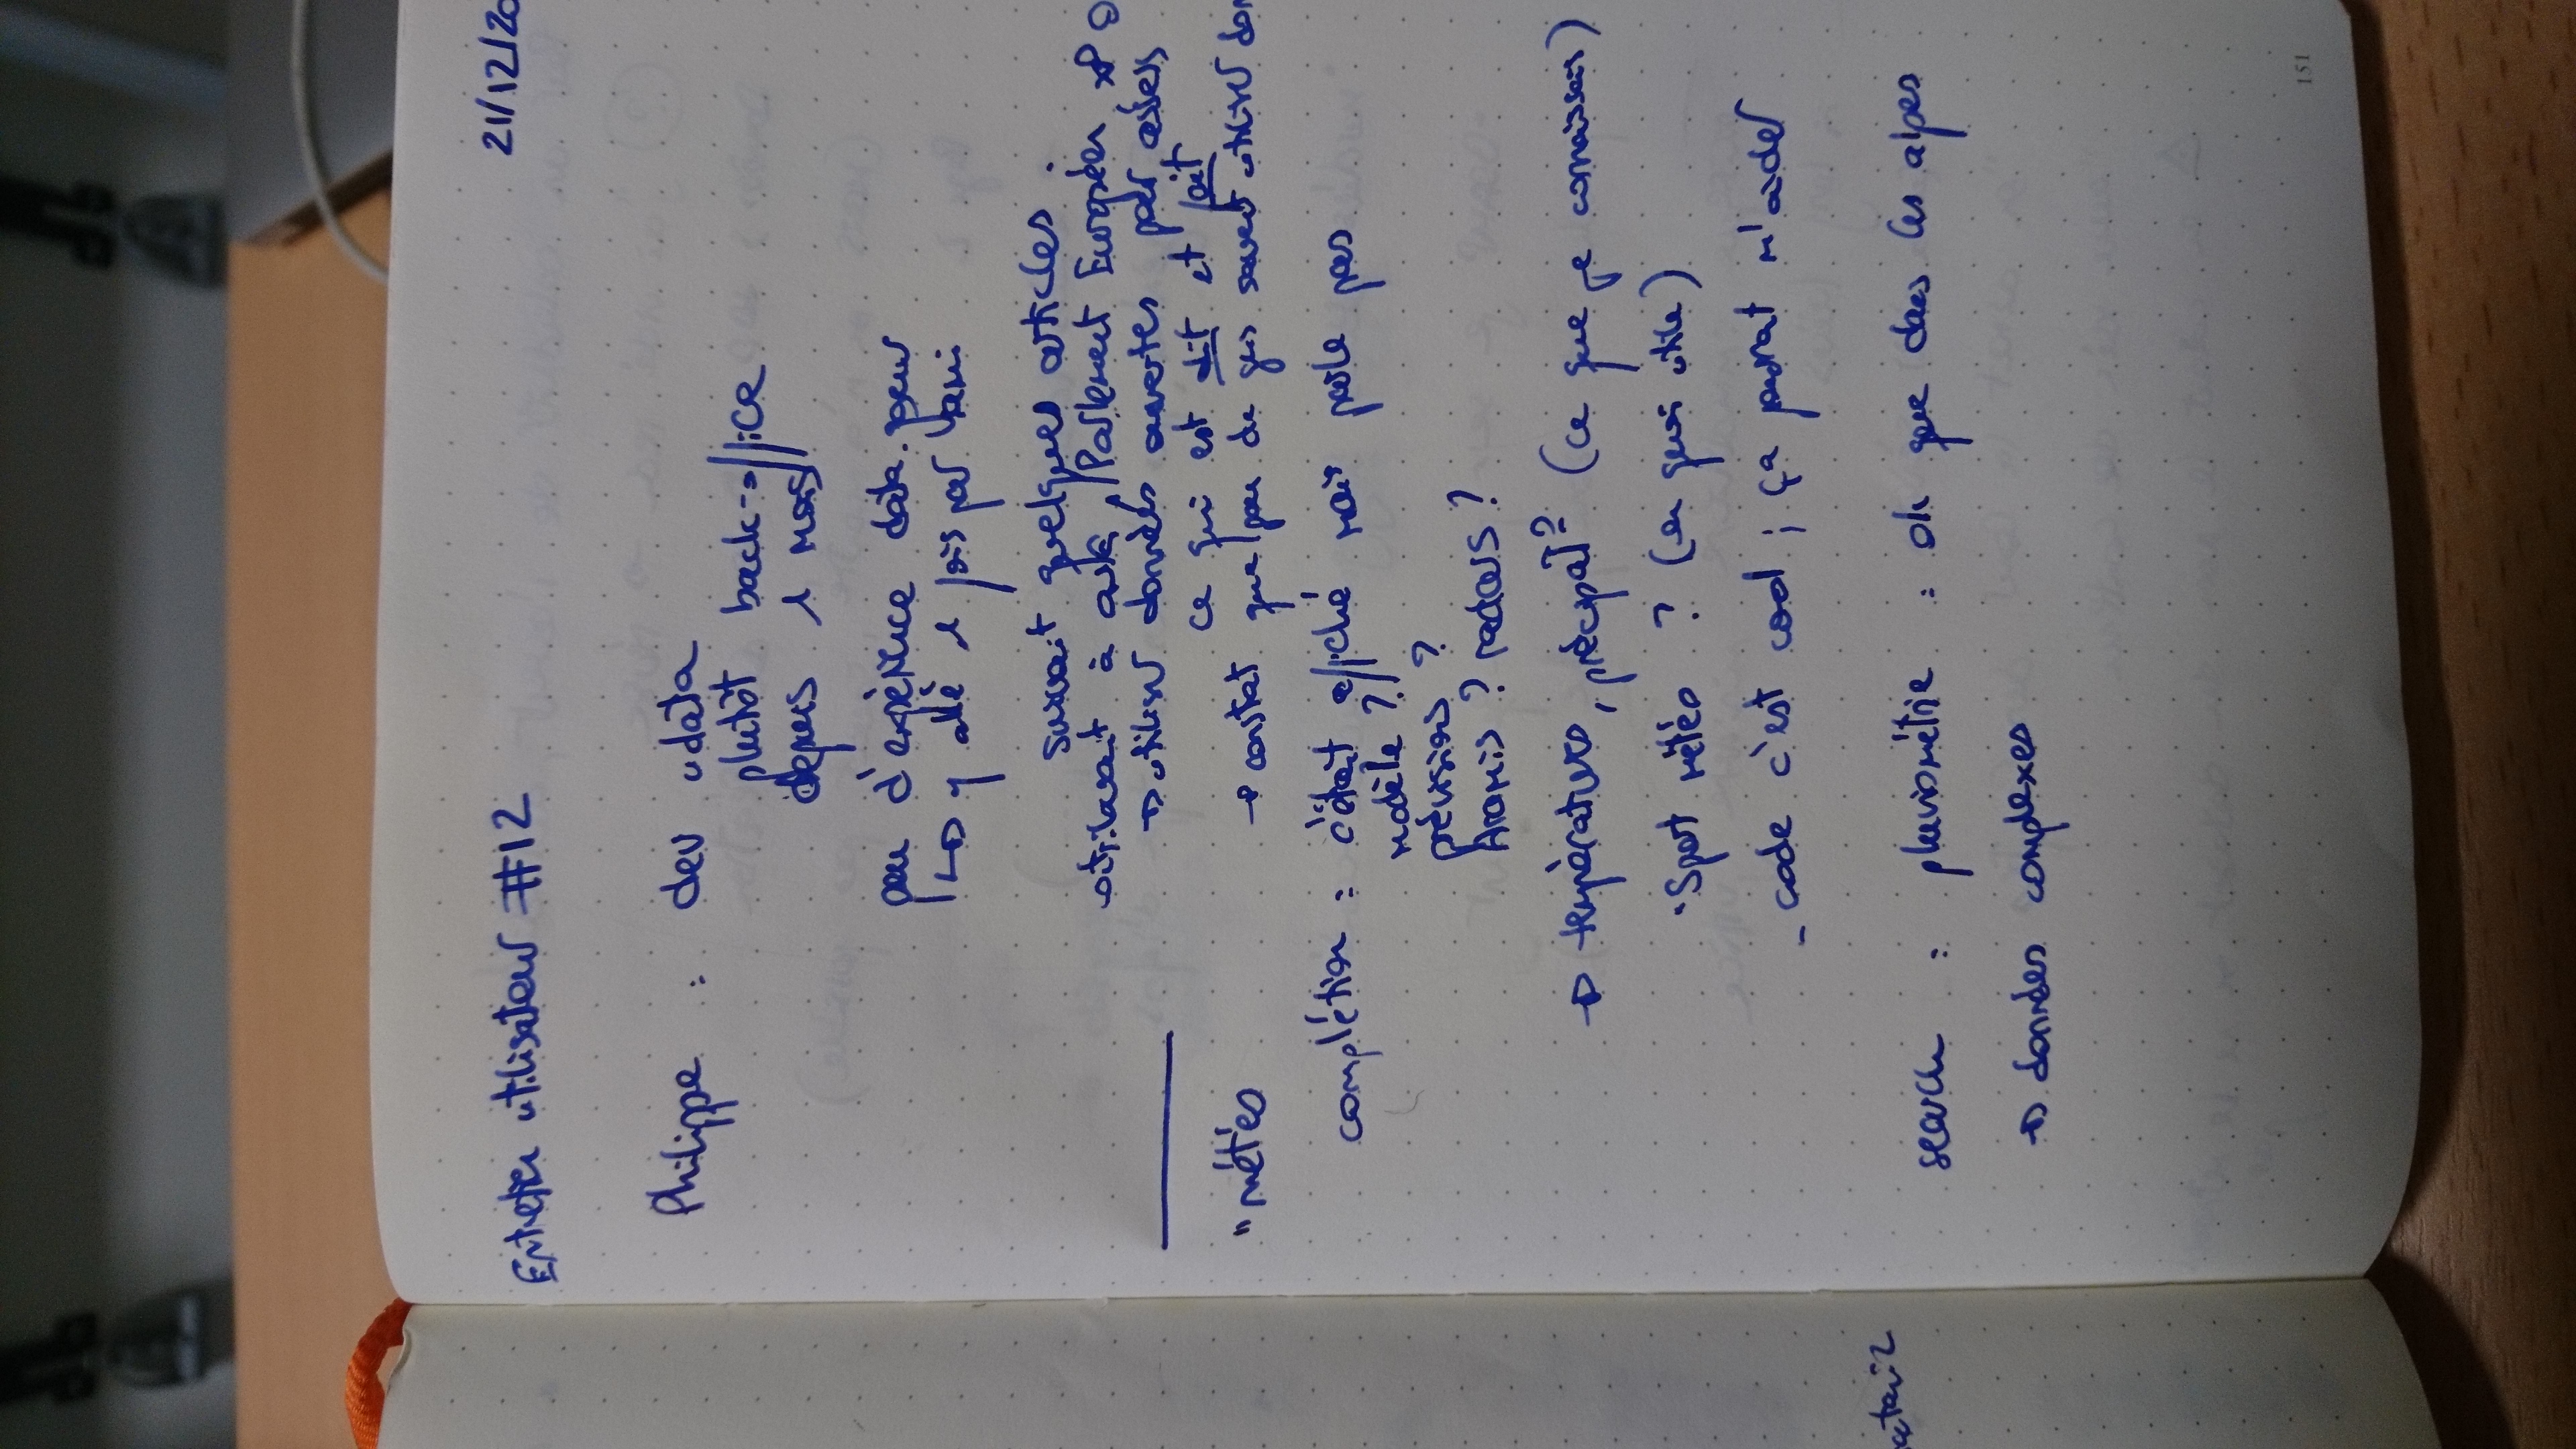 Entretien utilisateur #12
21/12/20
Philippe : dev udata
plutôt back-office
depuis 1 mois
peu d'expérience data.gouv
↳ y allé 1 fois par semi
suivait quelques articles.
utilisait à, Parlement Européen
→ utiliser données ouvertes pour
ce qui est dit et fait
"météo
→ constat que peu de gens savent utiliser don
complétion : c'était affiché mais parle pas
modèle ?
prévisions ?
Aramis ? radars ?
→ températures, précipat° ? (ce que je connaissais)
Spot météo ? (en quoi utile)
- code c'est cool ; ça pourrait m'aider
search : pluviométrie : ok que dans les alpes
→ données complexes
151